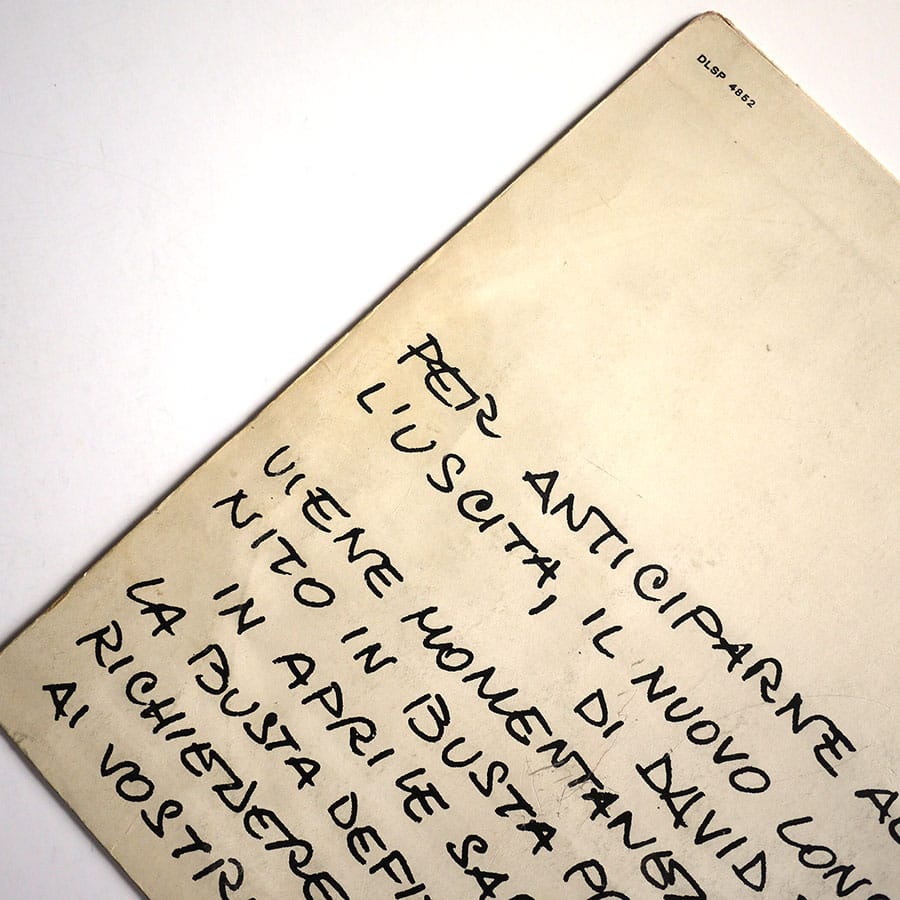 DLSP 4852
PER ANTICIPARNE
L'USCITA, IL NUOVO LONG
DI DAVID
VIENE MOMENTANE
NITO IN BUSTA
IN APRILE SA
LA BUSTA DEFI
RICHIEDERE
AI VOSTR